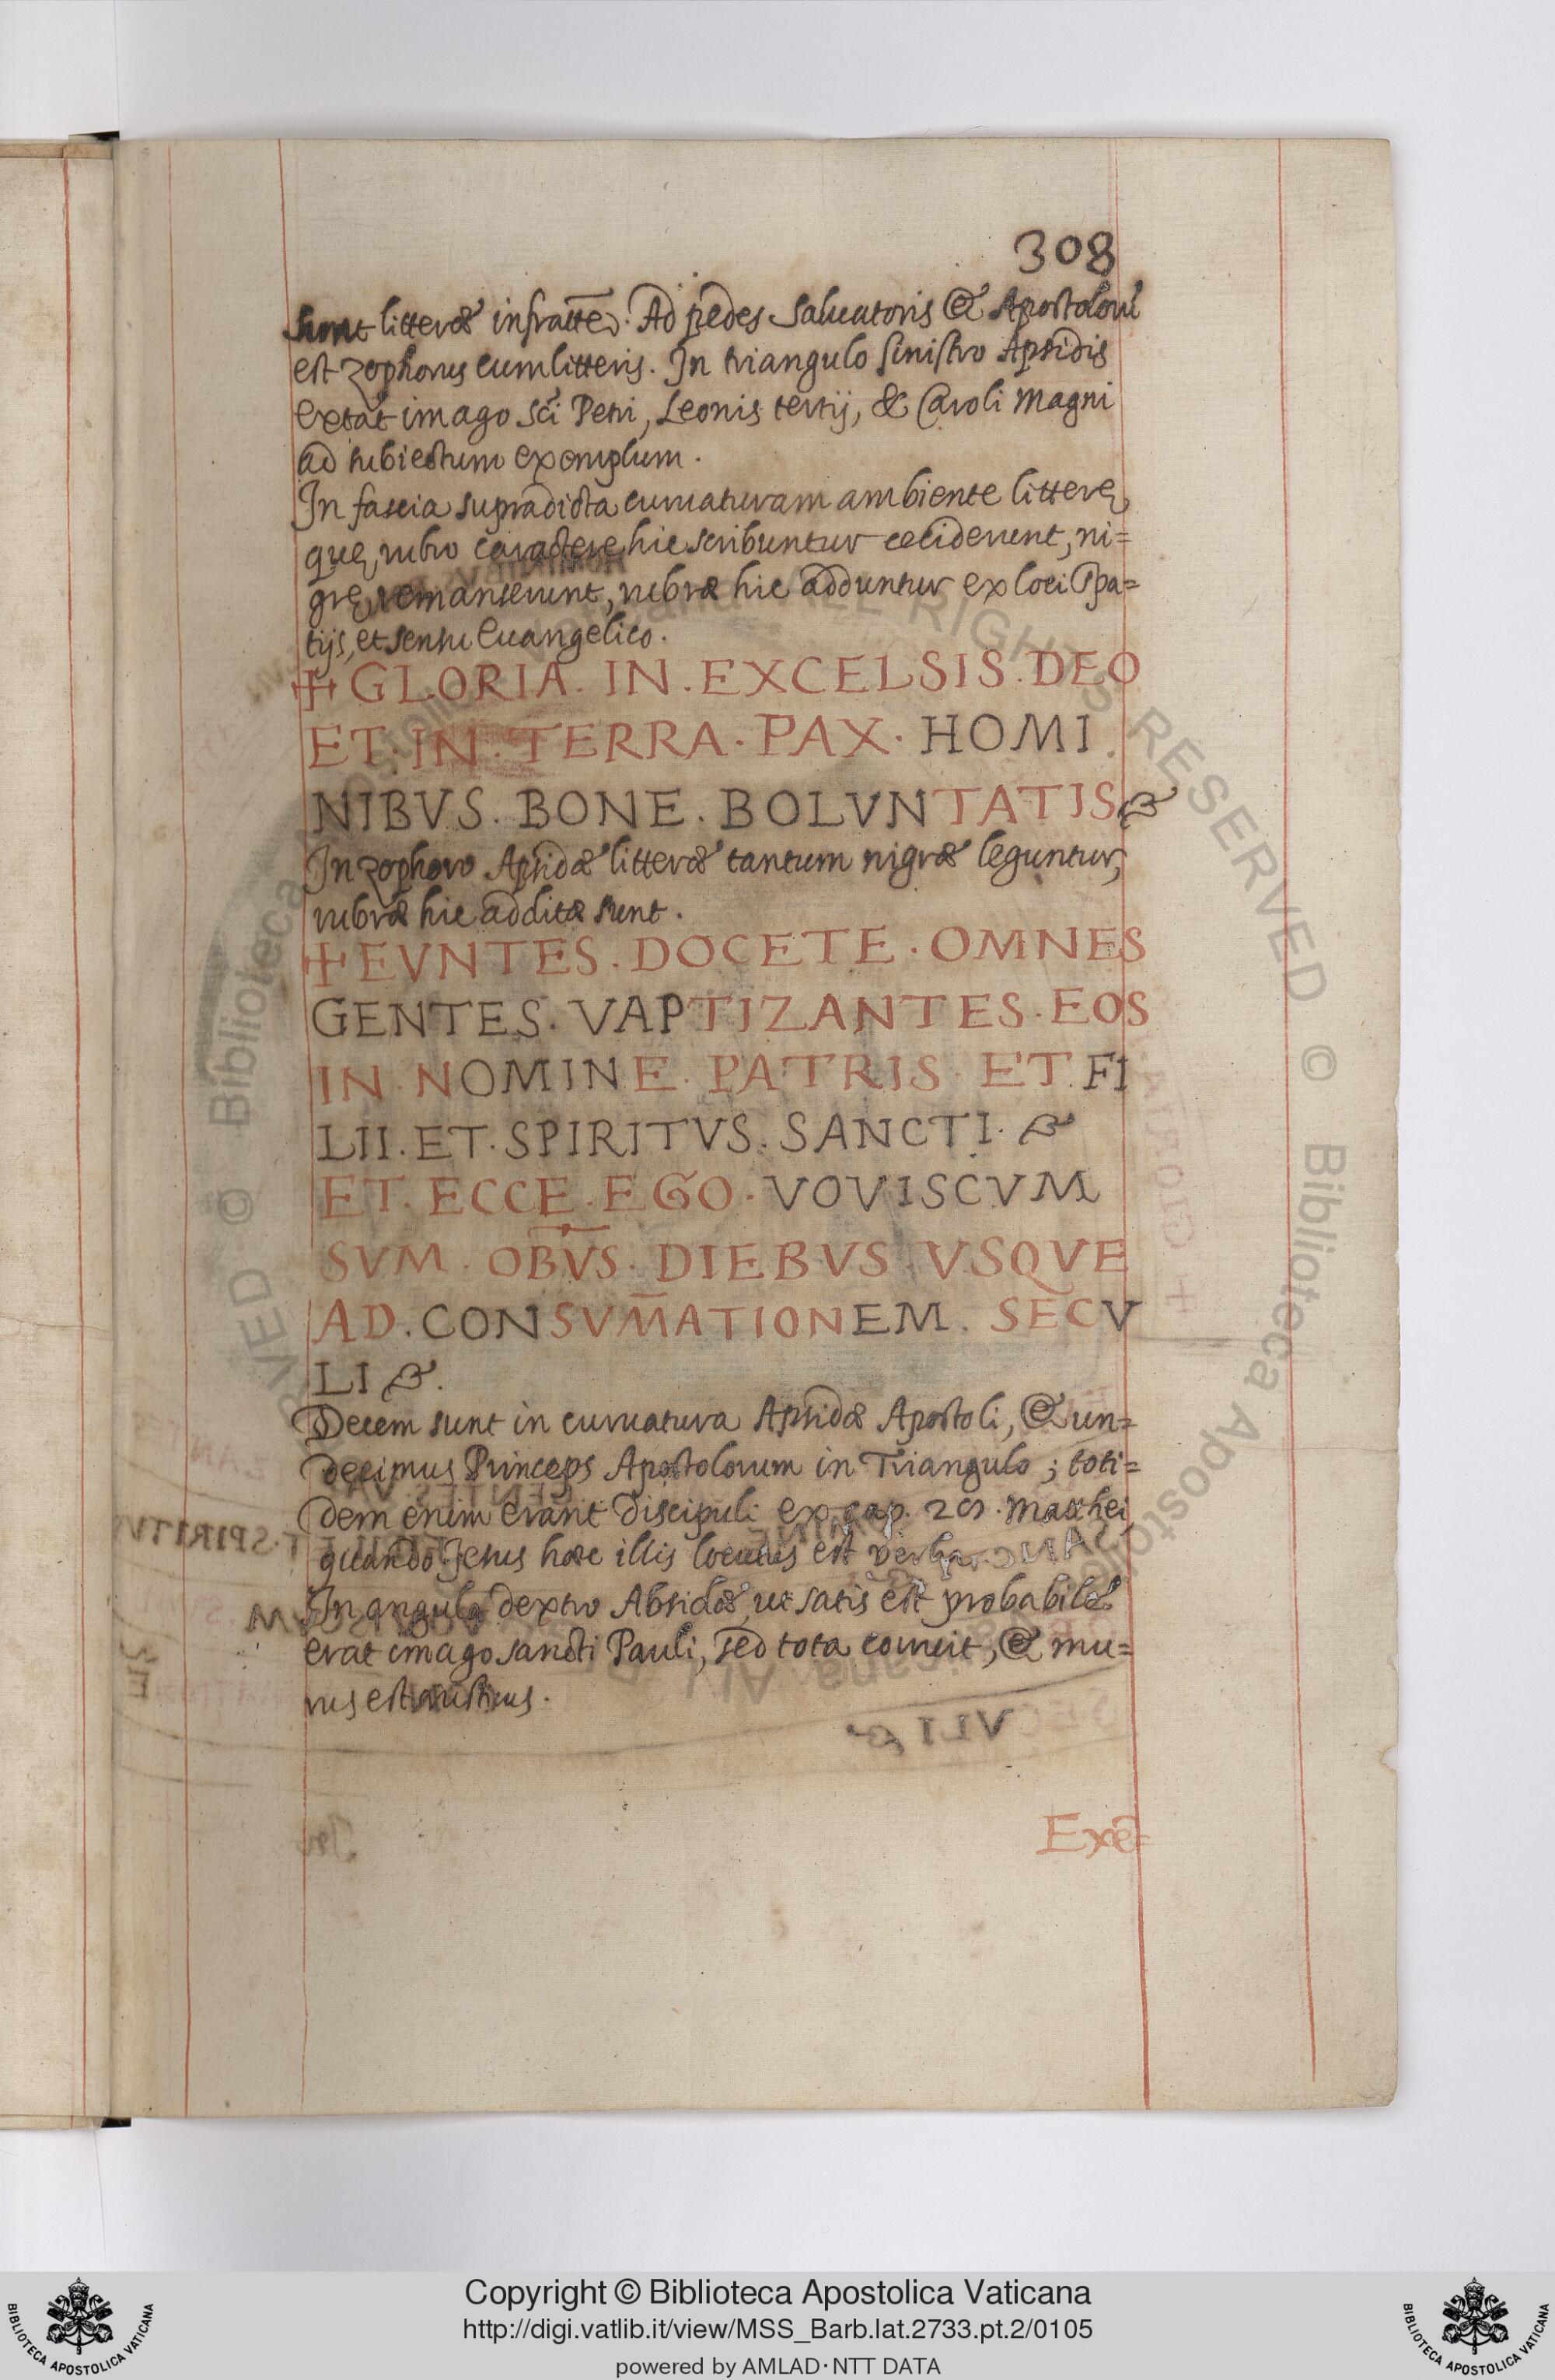 308
sunt litteræ infrattę. Ad pedes Saluatoris & Apostoloru
est zophorus cum litteris. In triangulo sinistro Apsidis
extat imago Sci Petri, Leonis tertij, & Caroli Magni
ad subiectum exemplum.
In fascia supradicta curuaturam ambiente litterę
quę rubro caractere hic scribuntur ceciderunt, ni=
grę remanserunt, rubræ hic adduntur ex loci spa=
tijs, et sensu Euangelico.
+ GLORIA. IN. EXCELSIS. DEO
ET. IN. TERRA. PAX. HOMI
NIBVS. BONE. BOLVNTATIS
In zophoro Apsidæ litteræ tantum nigræ leguntur,
rubræ hic additæ sunt.
+ EVNTES. DOCETE. OMNES
GENTES. VAPTIZANTES. EOS
IN NOMINE. PATRIS. ET. FI
LII. ET. SPIRITVS. SANCTI.
ET. ECCE. EGO. VOVISCVM
SVM. OBV̄S. DIEBVS VSQVE
AD. CONSVM̄ATIONEM. SECV
LI
Decem sunt in curuatura Apsidæ Apostoli, & un=
decimus Princeps Apostolorum in Triangulo; toti=
dem enim erant discipuli ex cap. 28. Matthei,
quando Jesus hæc illis locutus est verba
In angulo dextro Absidæ, ut satis est probabile
erat imago sancti Pauli, sed tota corruit, & mu=
rus est rusticus.
Exē=
Copyright © Biblioteca Apostolica Vaticana
http://digi.vatlib.it/view/MSS_Barb.lat.2733.pt.2/0105
powered by AMLAD·NTT DATA
BIBLIOTECA APOSTOLICA VATICANA
BIBLIOTECA APOSTOLICA VATICANA